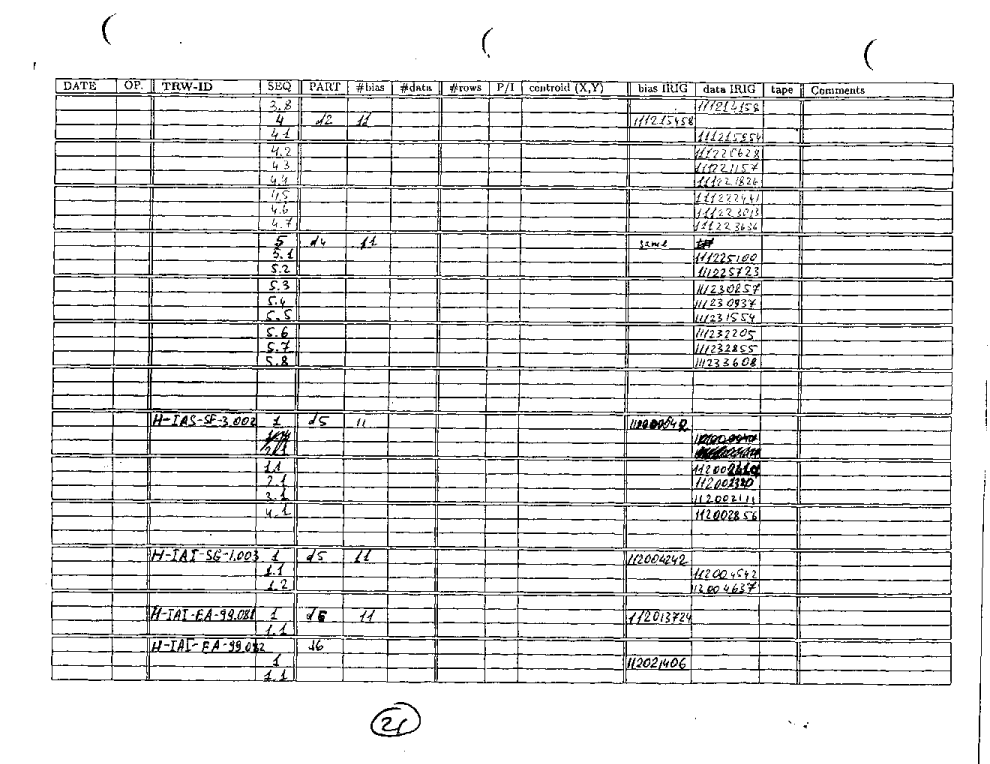 DATE OP. TRW-ID SEQ PART #bias #data #rows P/I centroid (X,Y) bias IRIG data IRIG tape Comments
3.8 111214158
4 d2 11 111215458
4.1 111215854
4.2 111220628
4.3 111221157
4.4 111221826
4.5 111222441
4.6 111223013
4.7 111223636
5 d4 11 same
5.1 111225100
5.2 111225723
5.3 111230257
5.4 111230937
5.5 111231554
5.6 111232205
5.7 111232855
5.8 111233608
H-IAS-SF-3.002 1 d5 11
1.1
2.1
3.1 112002111
4.1 112002856
H-IAI-SG-1.003 1 d5 11 112004242
1.1 112004542
1.2 113004637
H-IAI-EA-99.081 1 d6 11 112013724
1.1
H-IAI-EA-99.082 d6
1 112021406
1.1
21